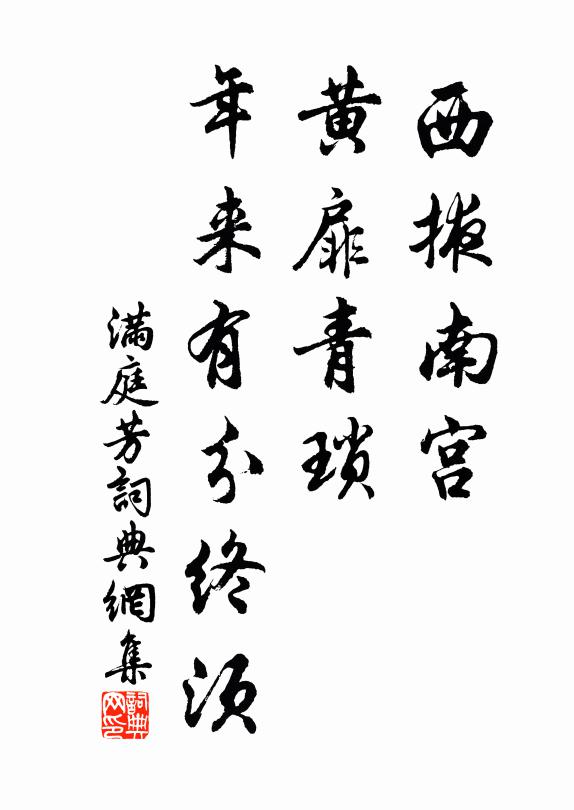 西掖南宫
黄扉青琐
年来有分终须
满庭芳詞典網集
詞典网印